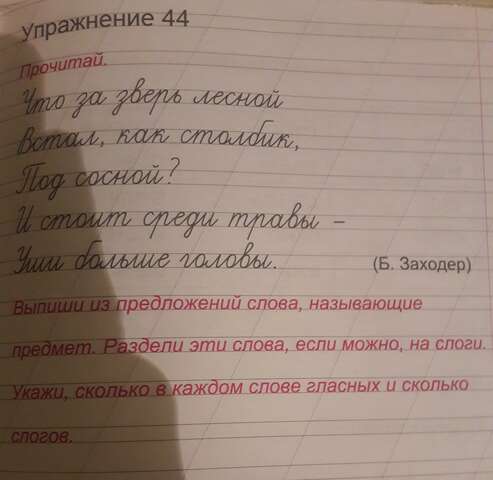 Упражнение 44
Прочитай.
Что за зверь лесной
Встал, как столбик,
Под сосной?
И стоит среди травы –
Уши больше головы.
(Б. Заходер)
Выпиши из предложений слова, называющие
предмет. Раздели эти слова, если можно, на слоги.
Укажи, сколько в каждом слове гласных и сколько
слогов.